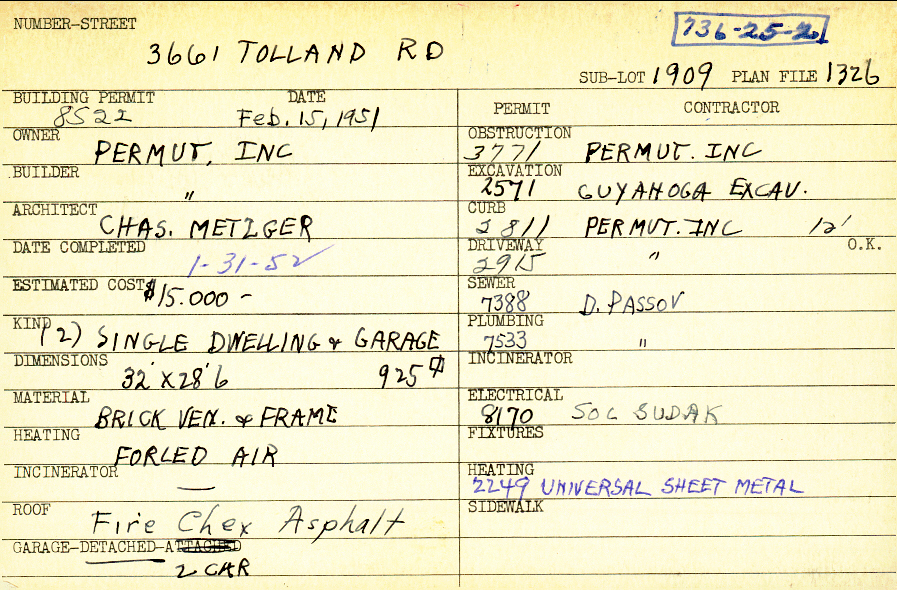 NUMBER-STREET
736-25-21
3661 TOLLAND RD
SUB-LOT 1909 PLAN FILE 1326
BUILDING PERMIT DATE
8522 Feb. 15, 1951
OWNER
PERMUT, INC
BUILDER
"
ARCHITECT
CHAS. METZGER
DATE COMPLETED
1-31-52
ESTIMATED COST $15.000 -
KIND (2) SINGLE DWELLING & GARAGE
DIMENSIONS
32' X 28' 6 925
MATERIAL
BRICK VEN. & FRAME
HEATING
FORCED AIR
INCINERATOR
—
ROOF
Fire Chex Asphalt
GARAGE-DETACHED-ATTACHED
2 CAR
PERMIT CONTRACTOR
OBSTRUCTION
3771 PERMUT. INC
EXCAVATION
2571 CUYAHOGA EXCAV.
CURB
2811 PERMUT. INC 12'
DRIVEWAY O.K.
2915 "
SEWER
7388 D. PASSOV
PLUMBING
7533 "
INCINERATOR
ELECTRICAL
8170 SOL SUDAK
FIXTURES
HEATING
2249 UNIVERSAL SHEET METAL
SIDEWALK